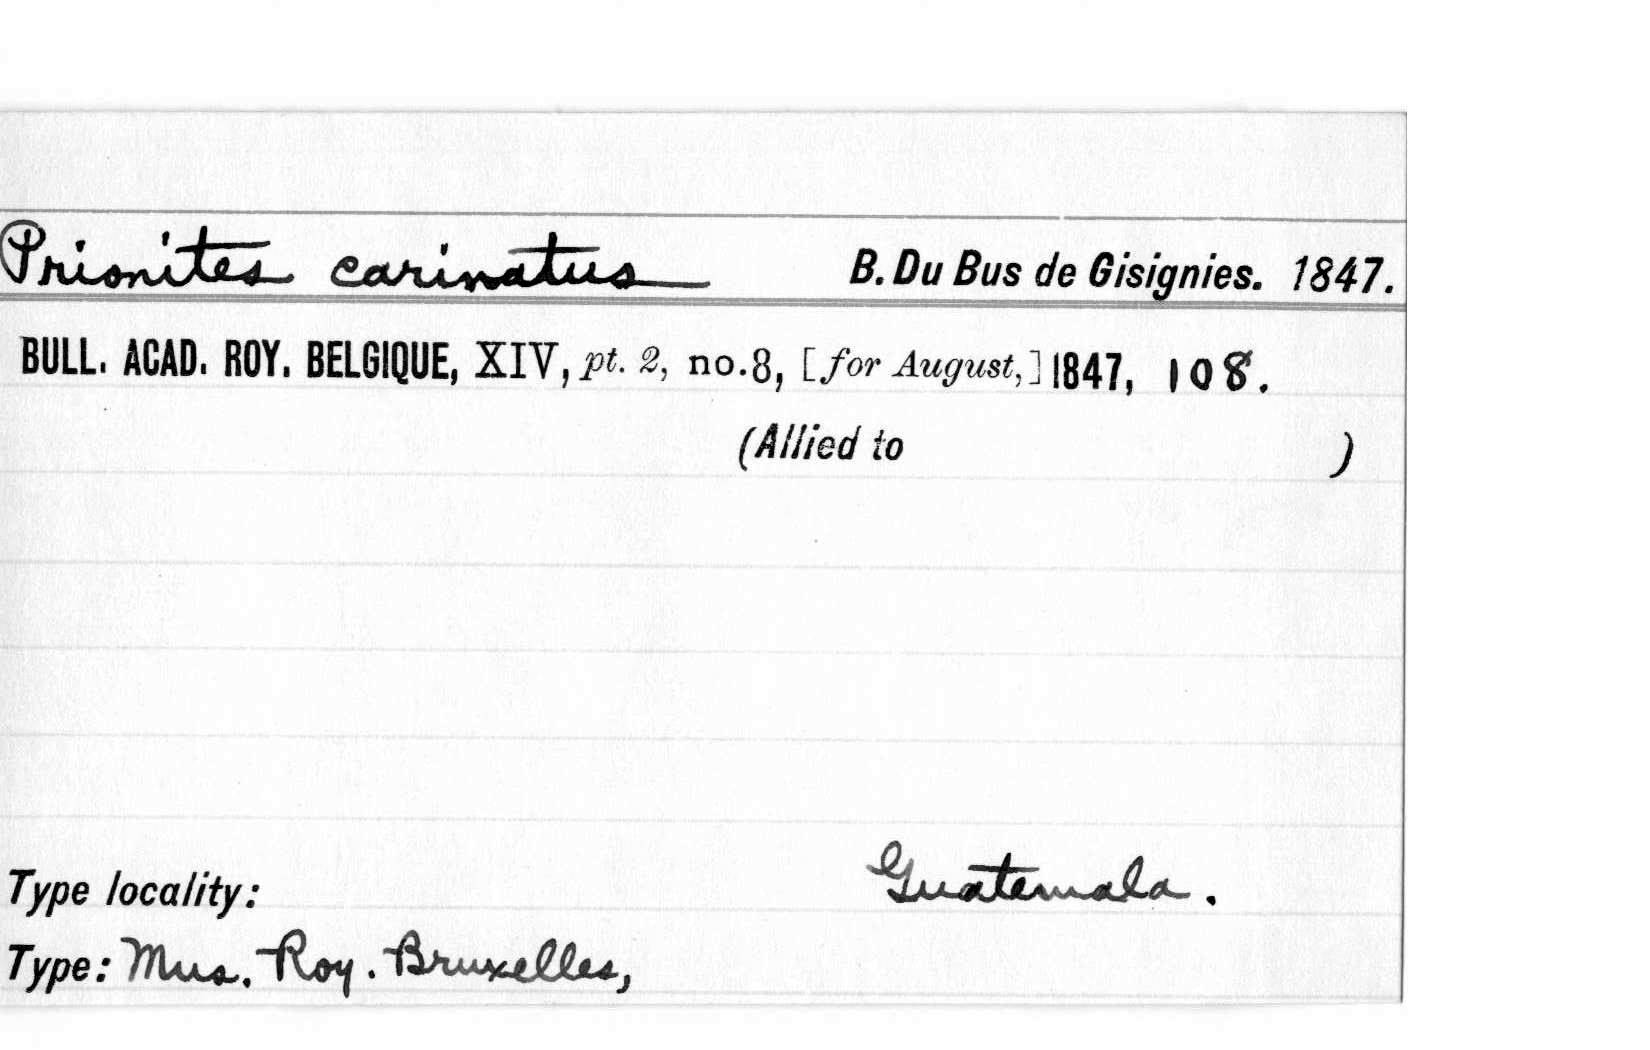 Prionites carinatus B. Du Bus de Gisignies. 1847.
BULL. ACAD. ROY. BELGIQUE, XIV, pt. 2, no. 8, [for August,] 1847, 108.
(Allied to )
Type locality: Guatemala.
Type: Mus. Roy. Bruxelles,